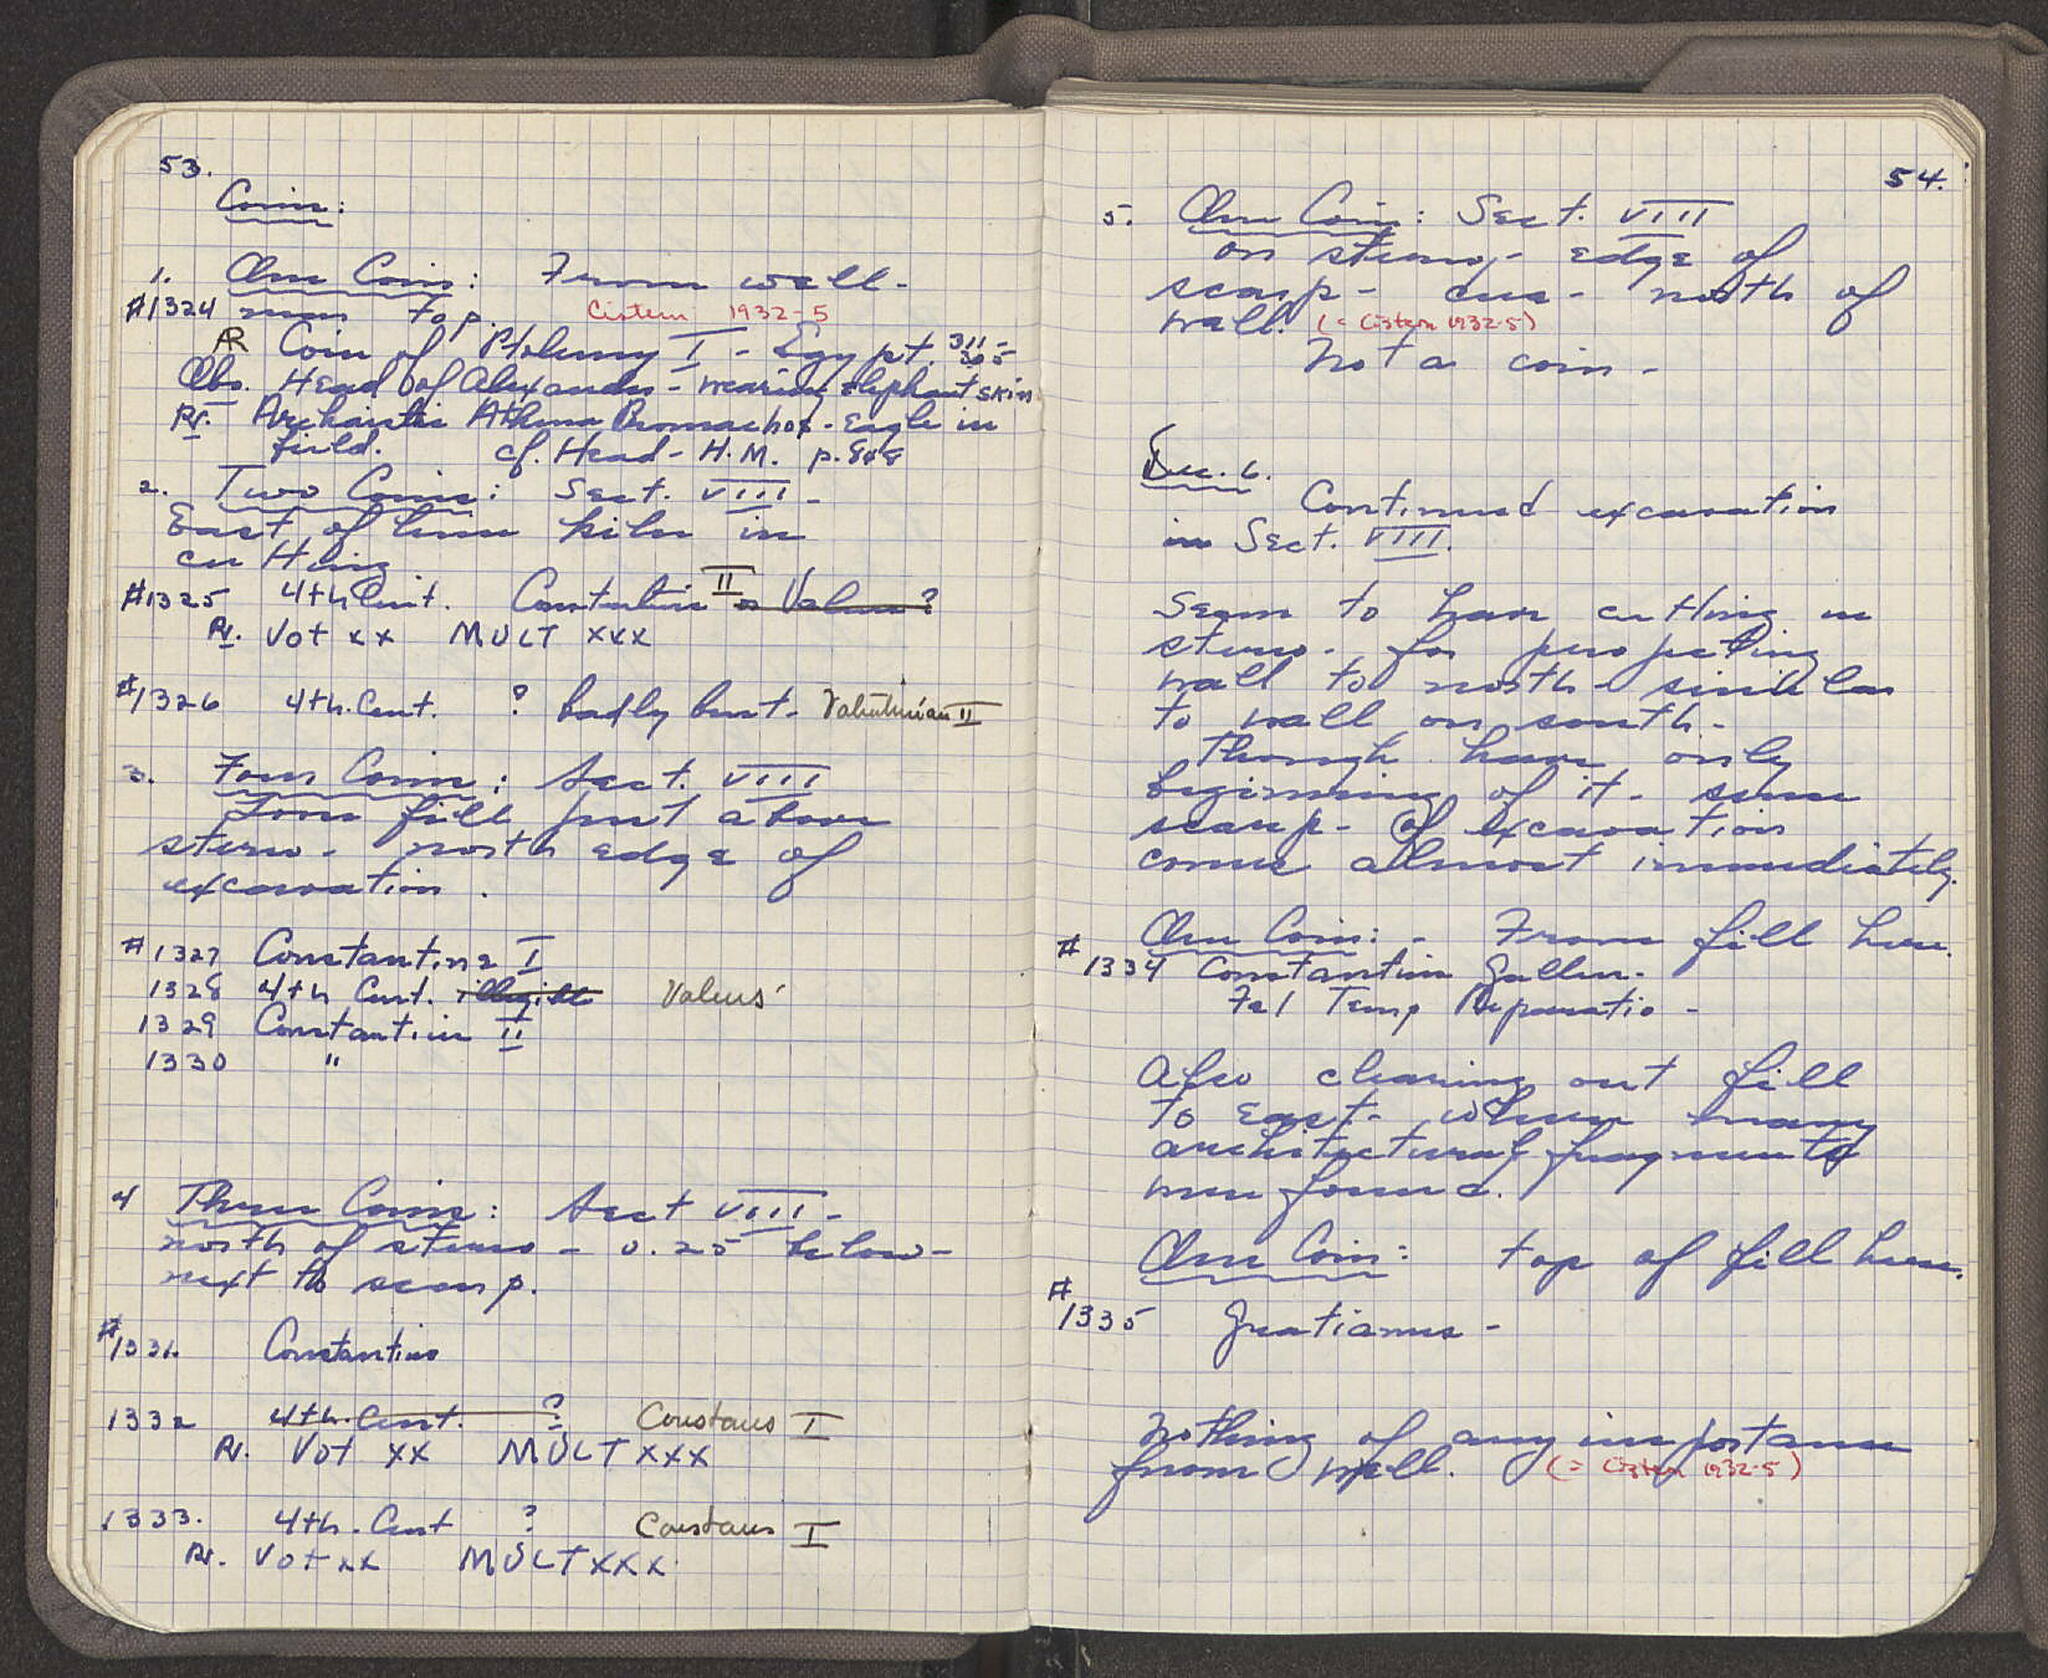 53.
Coins:
1. One Coin: From well -
#1324 near top. Cistern 1932-5
AR Coin of Ptolemy I - Egypt. 311-305
Obv. Head of Alexander - wearing elephant skin
Rv. Archaistic Athena Promachos - Eagle in
field. cf. Head - H.M. p. 848
2. Two Coins: Sect. VIII -
East of lime kiln in
cutting
#1325 4th Cent. Constantine II or Valens?
Rv. Vot xx MULT xxx
#1326 4th. Cent. ? badly bent - Valentinian II
3. Four Coins: Sect. VIII
From fill just above
stereo - north edge of
excavation.
#1327 Constantine I
1328 4th Cent. illegible Valens
1329 Constantine II
1330 "
4 Three Coins: Sect VIII -
north of stereo - 0.25 below -
next to scarp.
#1331. Constantius
1332 4th. Cent. ? Constans I
Rv. Vot xx MULT xxx
1333. 4th. Cent ? Constans I
Rv. Vot xx MULT xxx
54.
5. One Coin: Sect. VIII
on stereo - edge of
scarp - north of
well. (= Cistern 1932-5)
Not a coin -
Dec. 6.
Continued excavation
in Sect. VIII.
Seem to have cutting in
stereo - for projecting
wall to north - similar
to wall on south -
Though have only
beginning of it - since
scarp - of excavation
comes almost immediately.
One Coin: - From fill here.
#1334 Constantius Gallus -
Fel Temp Reparatio -
Also clearing out fill
to East - where many
architectural fragments
were found.
One Coin: top of fill here.
#1335 Gratianus -
Nothing of any importance
from well. (= Cistern 1932-5)